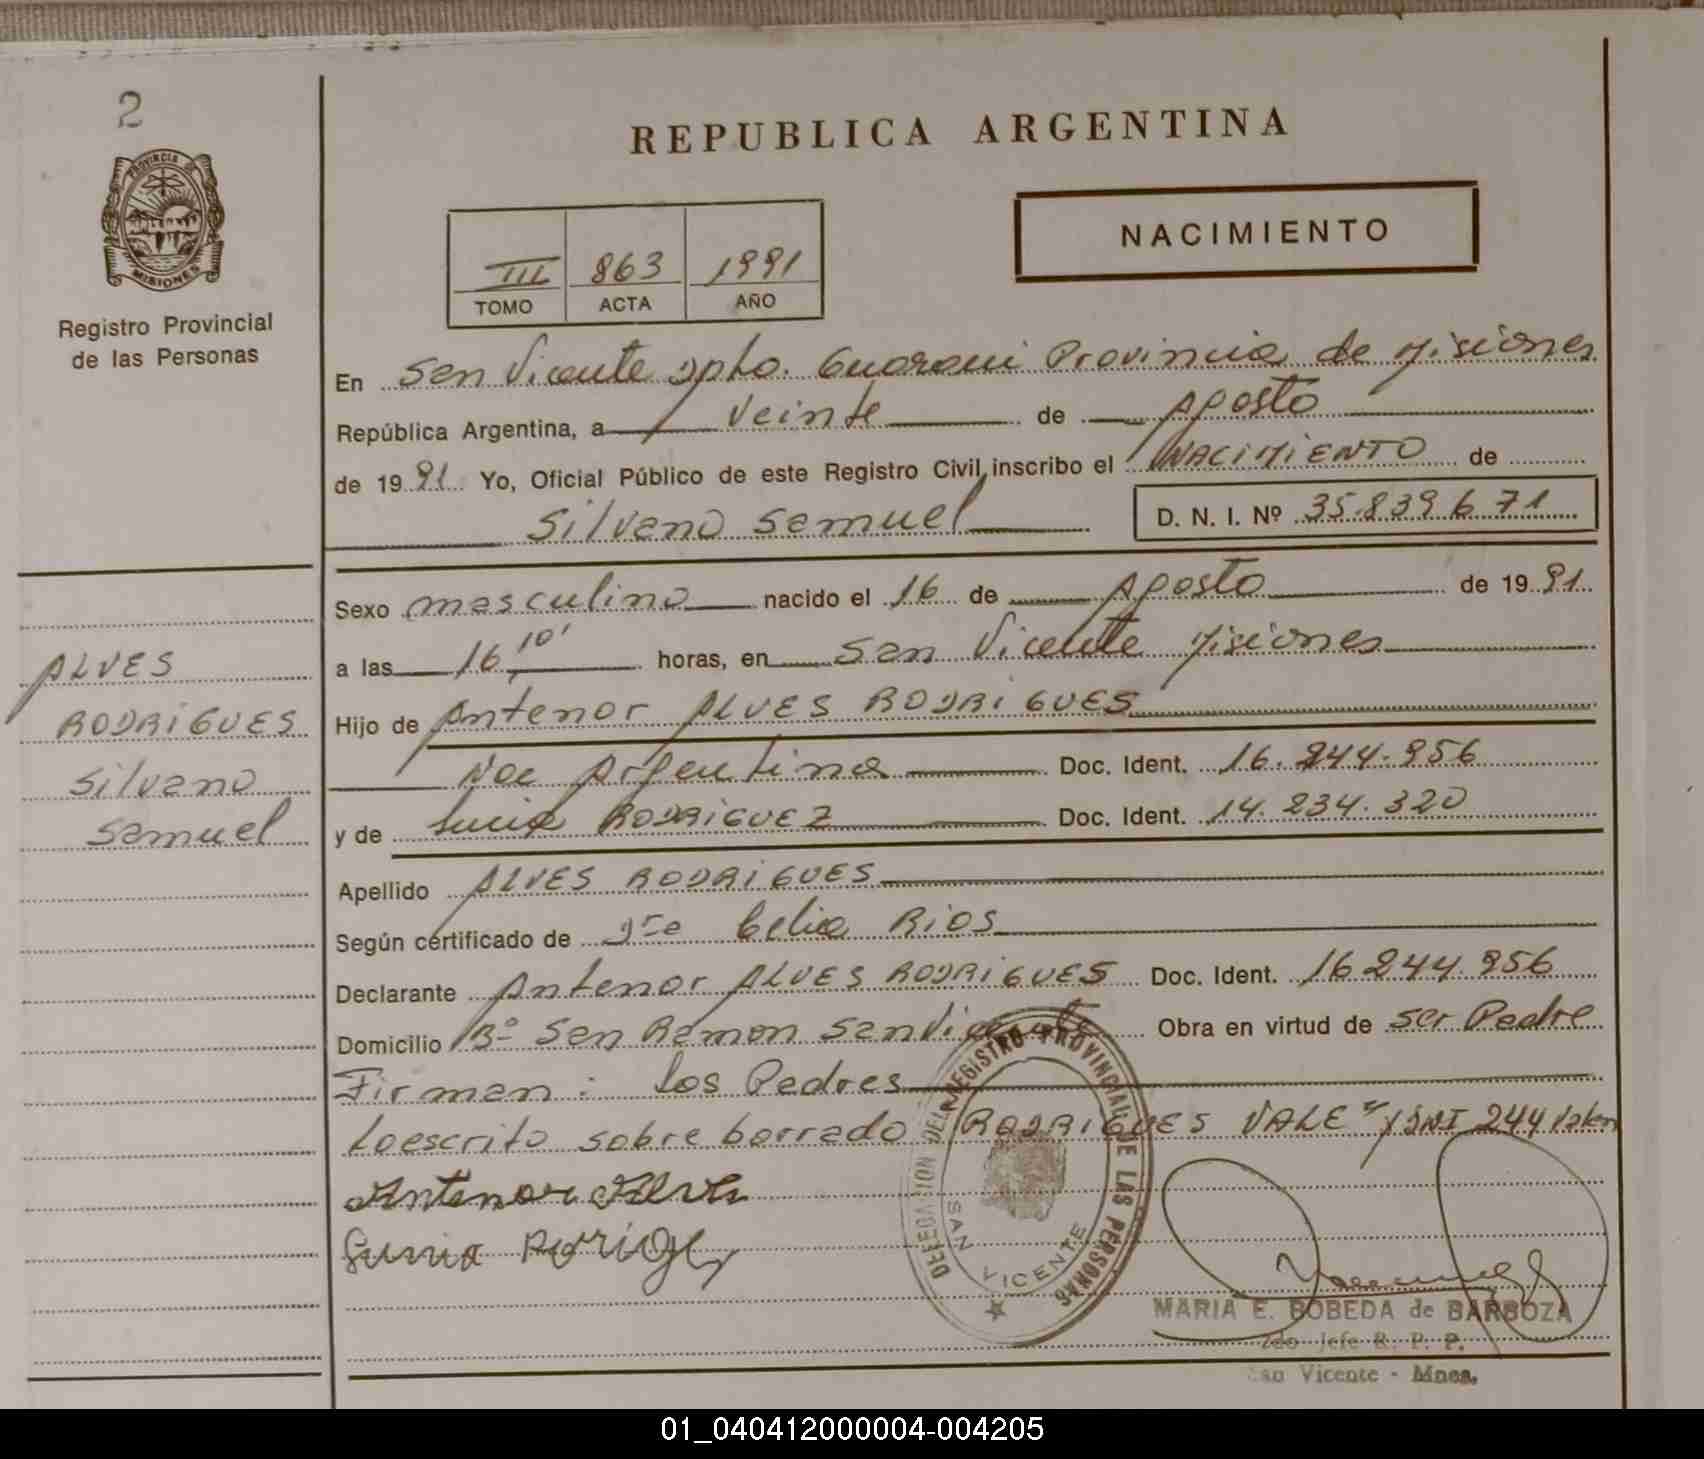 2
PROVINCIA DE
MISIONES
Registro Provincial
de las Personas
REPUBLICA ARGENTINA
NACIMIENTO
III 863 1991
TOMO ACTA AÑO
En San Vicente Dpto. Guarani Provincia de Misiones
República Argentina, a veinte de Agosto
de 1991 Yo, Oficial Público de este Registro Civil, inscribo el NACIMIENTO de
Silvano Samuel D. N. I. Nº 35.839.671
Sexo masculino nacido el 16 de Agosto de 1991
a las 16,10' horas, en San Vicente Misiones
Hijo de Antenor ALVES RODRIGUES
Nac Argentina Doc. Ident. 16.244.956
y de Lucia RODRIGUEZ Doc. Ident. 14.234.320
Apellido ALVES RODRIGUES
Según certificado de Dra Celia Rios
Declarante Antenor ALVES RODRIGUES Doc. Ident. 16.244.956
Domicilio Bº San Ramon San Vicente Obra en virtud de ser Padre
Firman: los Padres
Lo escrito sobre borrado RODRIGUES VALE" y DNI 244 Valen
Antenor Alves
ALVES
RODRIGUES
Silvano
Samuel
DELEGACION DEL REGISTRO PROVINCIAL DE LAS PERSONAS
SAN VICENTE
MARIA E. BOBEDA de BARBOZA
2do Jefe R. P. P.
San Vicente - Mnes.
01_040412000004-004205